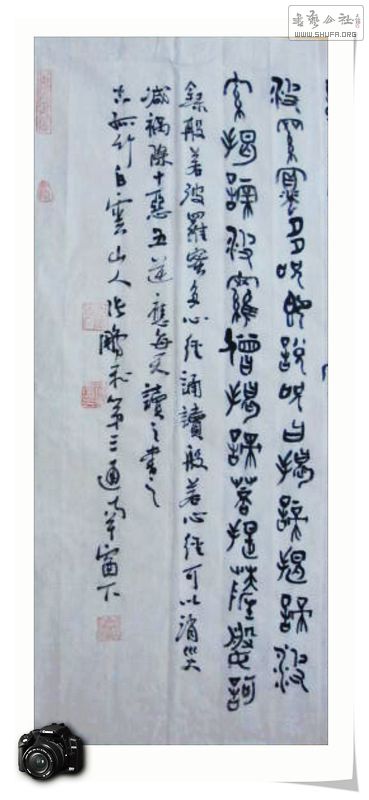 書藝公社
WWW.SHUFA.ORG
般羅蜜多呪即說呪曰揭諦揭諦般
羅揭諦般羅僧揭諦菩提薩婆訶
錄般若波羅蜜多心經誦讀般若心經可以消災
減禍除十惡五逆應每天讀之書之
白雲山人张鵬第三通窗下
Canon